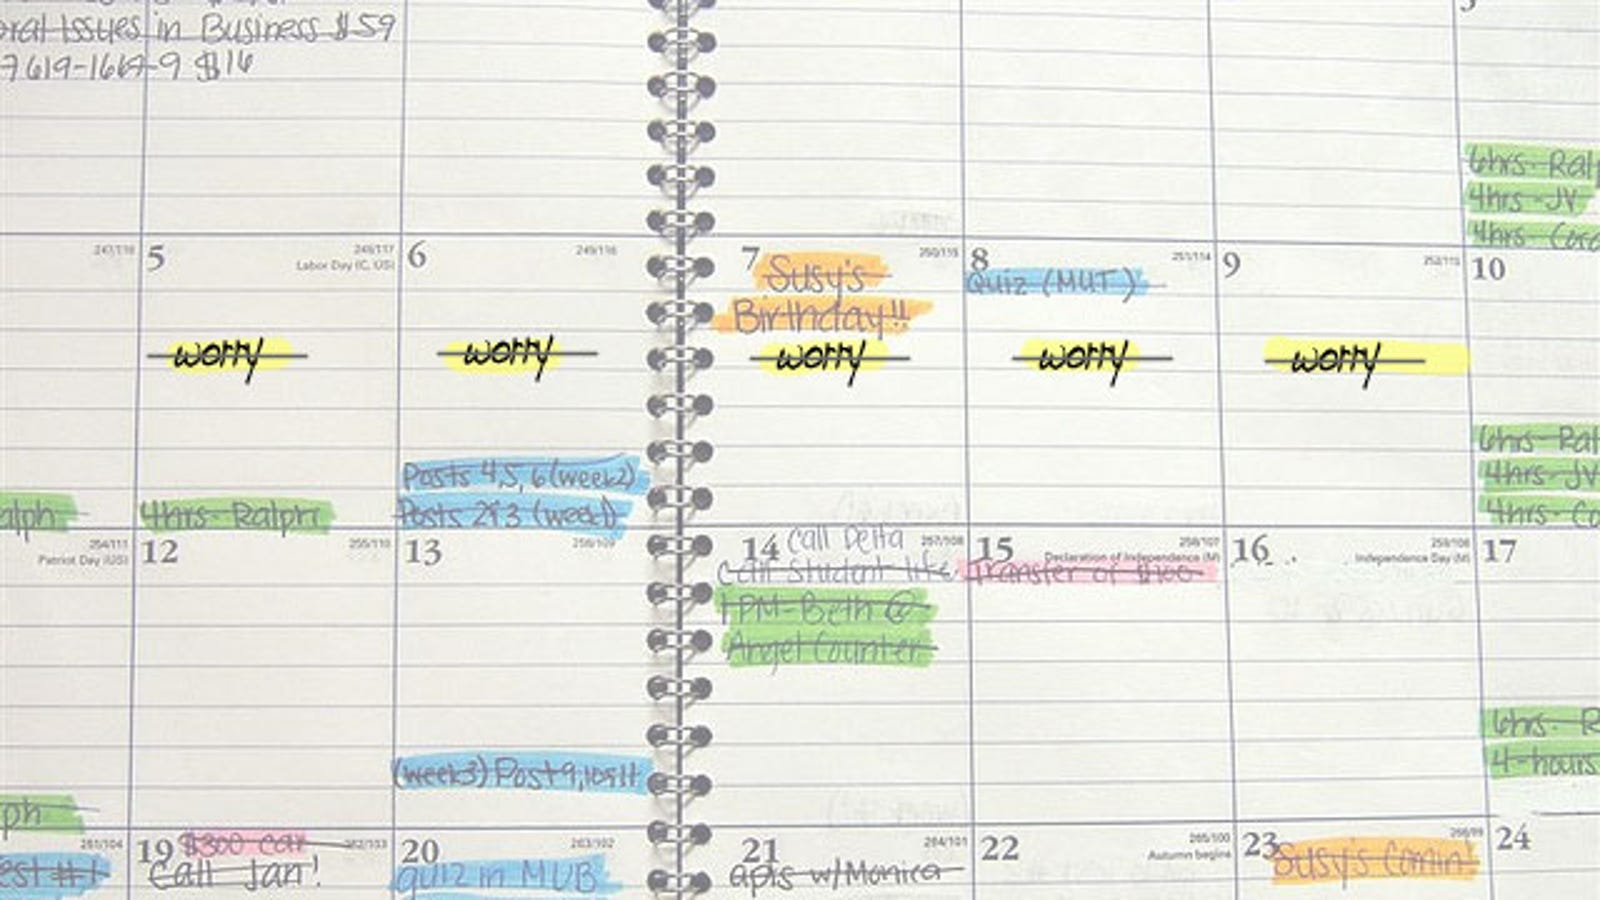 Issues in Business $59
7619-1669-9 $16
6hrs- Ral
4hrs-JV
4hrs-
247/118
5
248/117
Labor Day (C, US)
6
249/116
7
250/115
8
251/114
9
252/113
10
Susy's
Birthday!!
Quiz (MUT)
worry
worry
worry
worry
worry
6hrs- Ral
4hrs-JV
4hrs- Co
alph
4hrs- Ralph
Posts 4,5,6 (week2)
Posts 2&3 (week1)
254/111
Patriot Day (US)
12
255/110
13
256/109
14
Call Delta
257/108
Call Student life
1PM-Beth @
Angel Counter
15
258/107
Declaration of Independence (M)
Transfer of $100
16
259/106
Independence Day (M)
17
6hrs- R
4-hours
(week3) Post 9,10&11
ph
261/104
est #1
19
$300 Car
262/103
Call Jan!
20
263/102
quiz in MUB
21
264/101
apts w/Monica
22
265/100
Autumn begins
23
266/99
Susy's Comin'
24